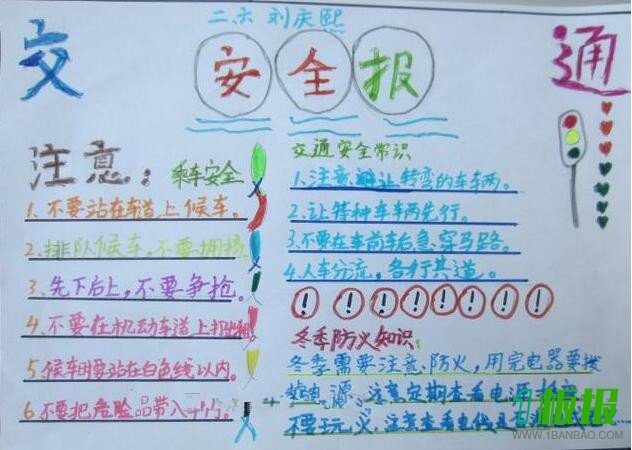 二六 刘庆熙
交 安全报 通
注意：乘车安全
1.不要站在车道上候车。
2.排队候车,不要拥挤。
3.先下后上,不要争抢。
4.不要在机动车道上打出租
5.候车时要站在白色线以内。
6.不要把危险品带入车内。
交通安全常识
1.注意避让转弯的车车两。
2.让特种车车两先行。
3.不要在车前车后急穿马路。
4.人车分流,各行其道。
! ! ! ! ! ! ! !
冬季防火知识:
冬季需要注意防火,用完电器要拔
掉电源,注意定期查看电源
不要玩火,注意查看电
板报
WWW.1BANBAO.COM